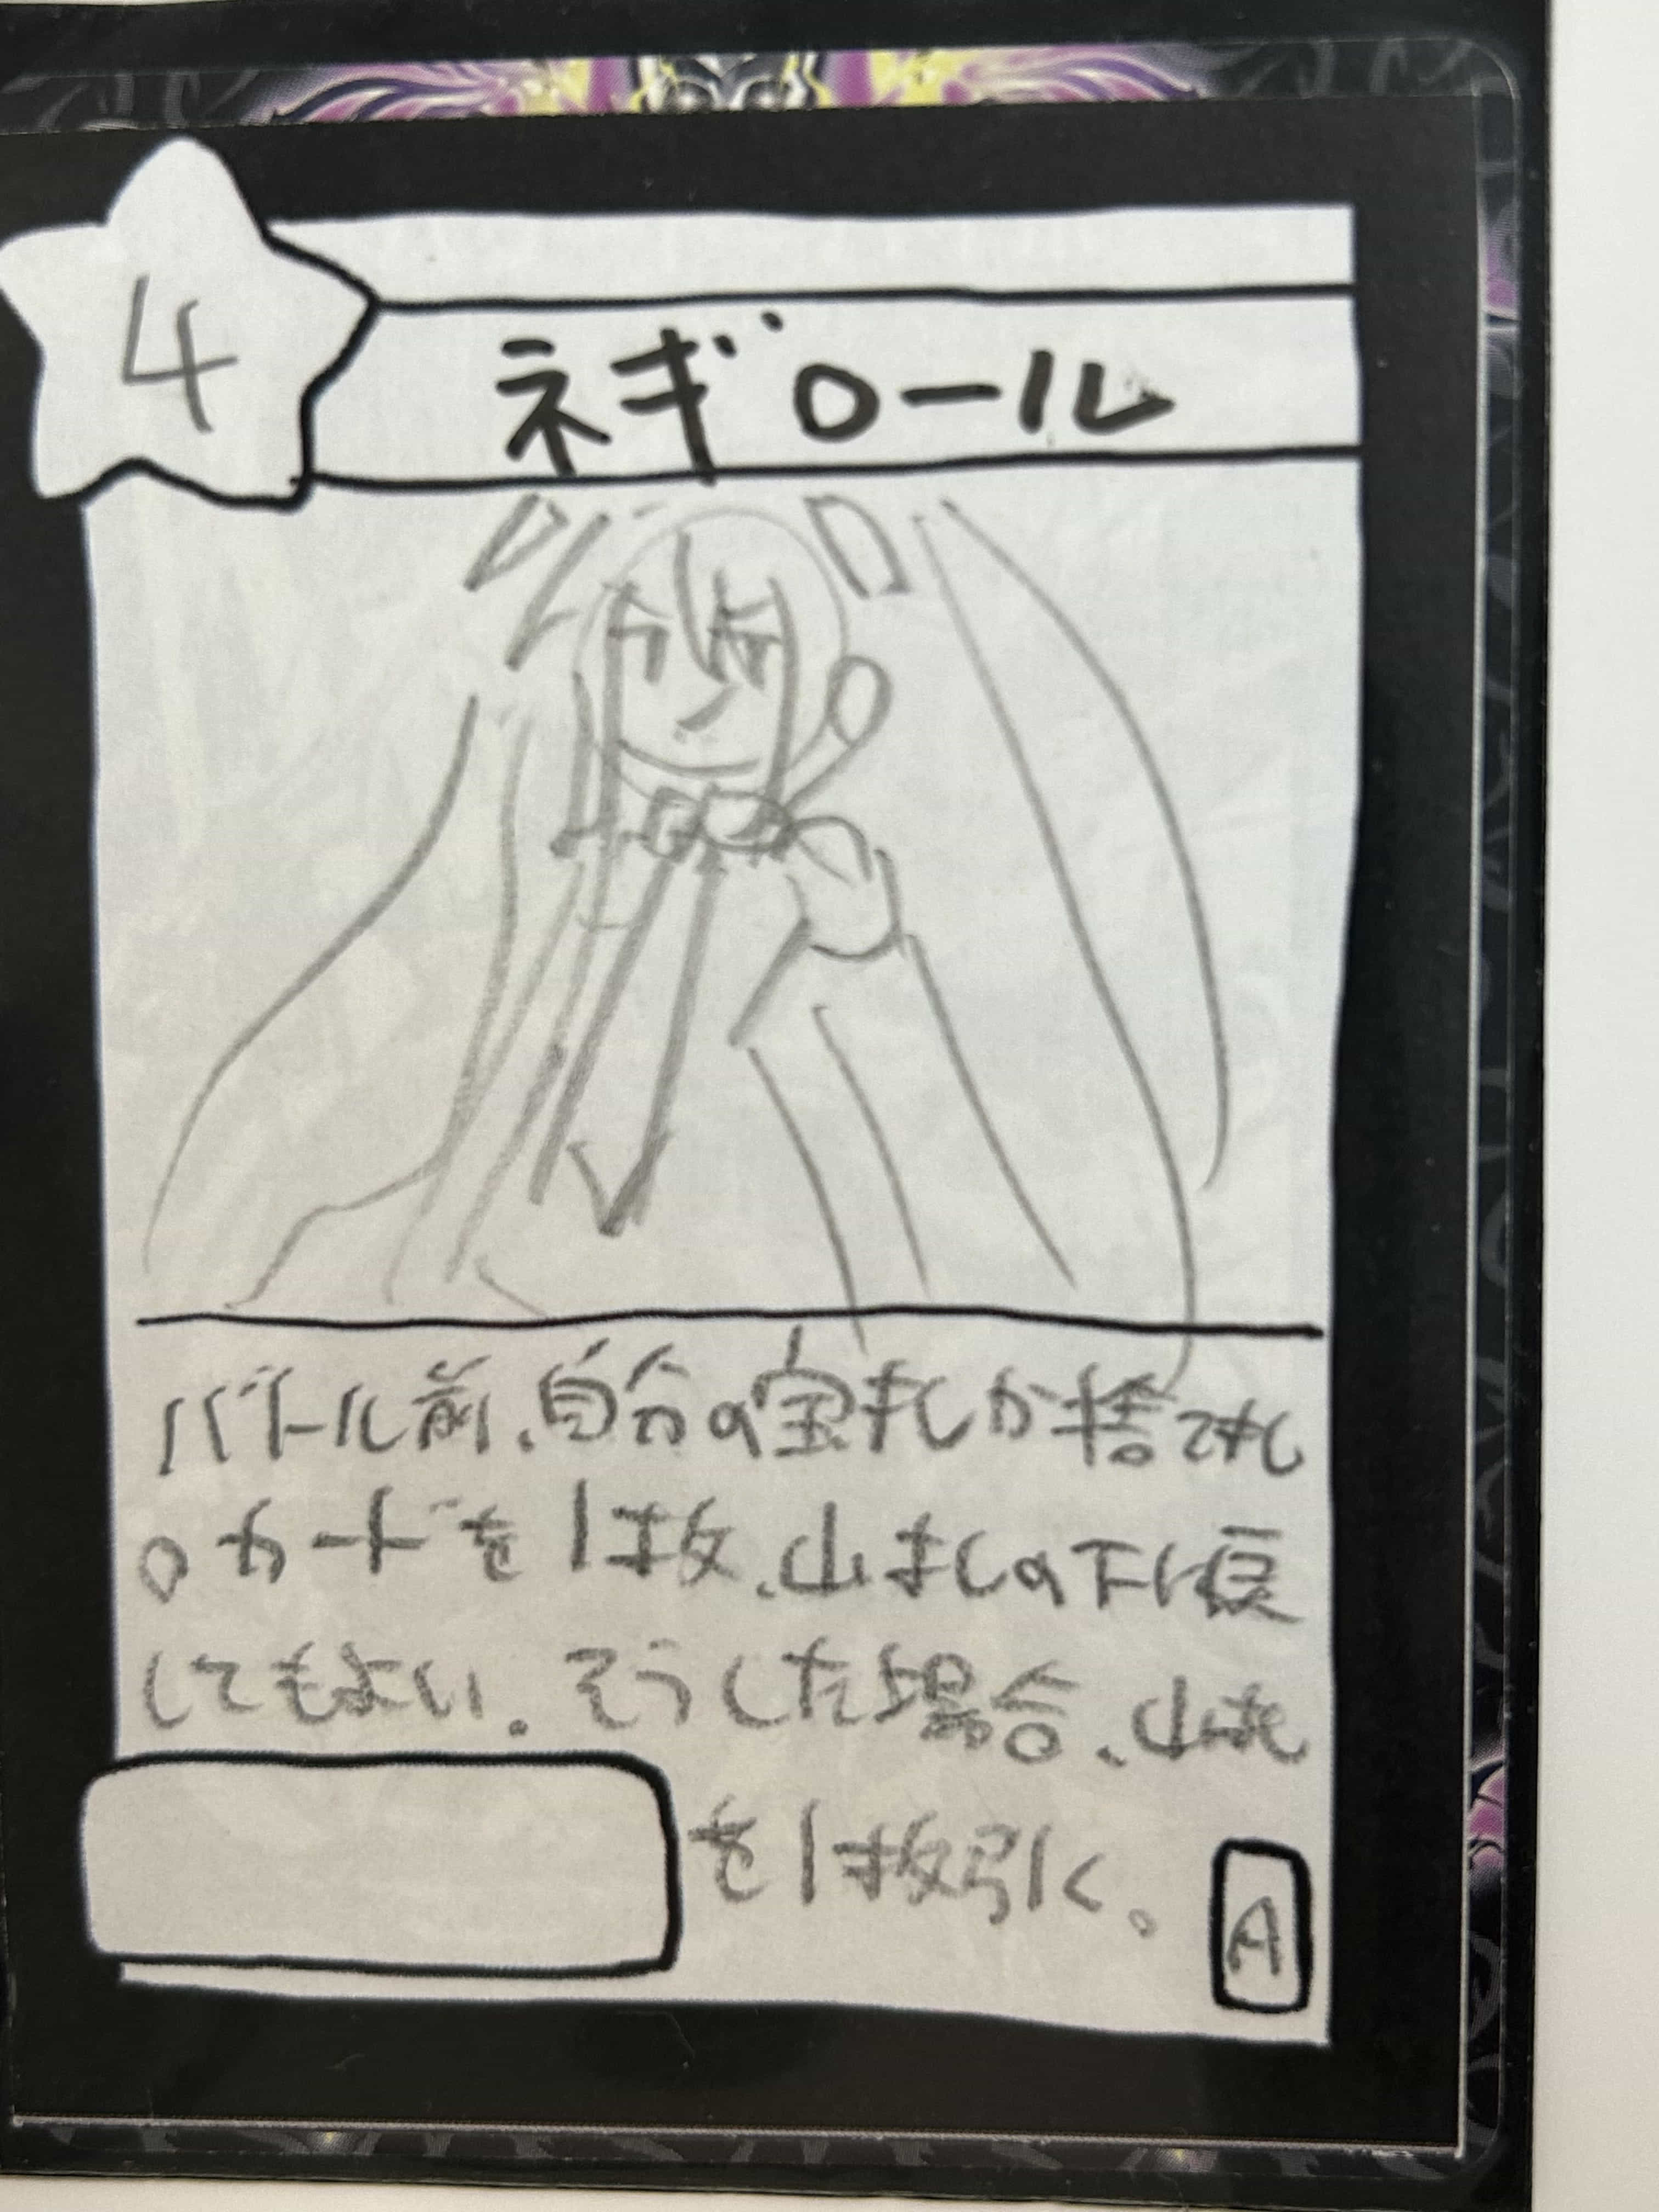 4
ネギロール
バトル前、自分の宝札か捨て札
のカードを1枚、山札の下に戻
してもよい。そうした場合、山札
を1枚引く。
A